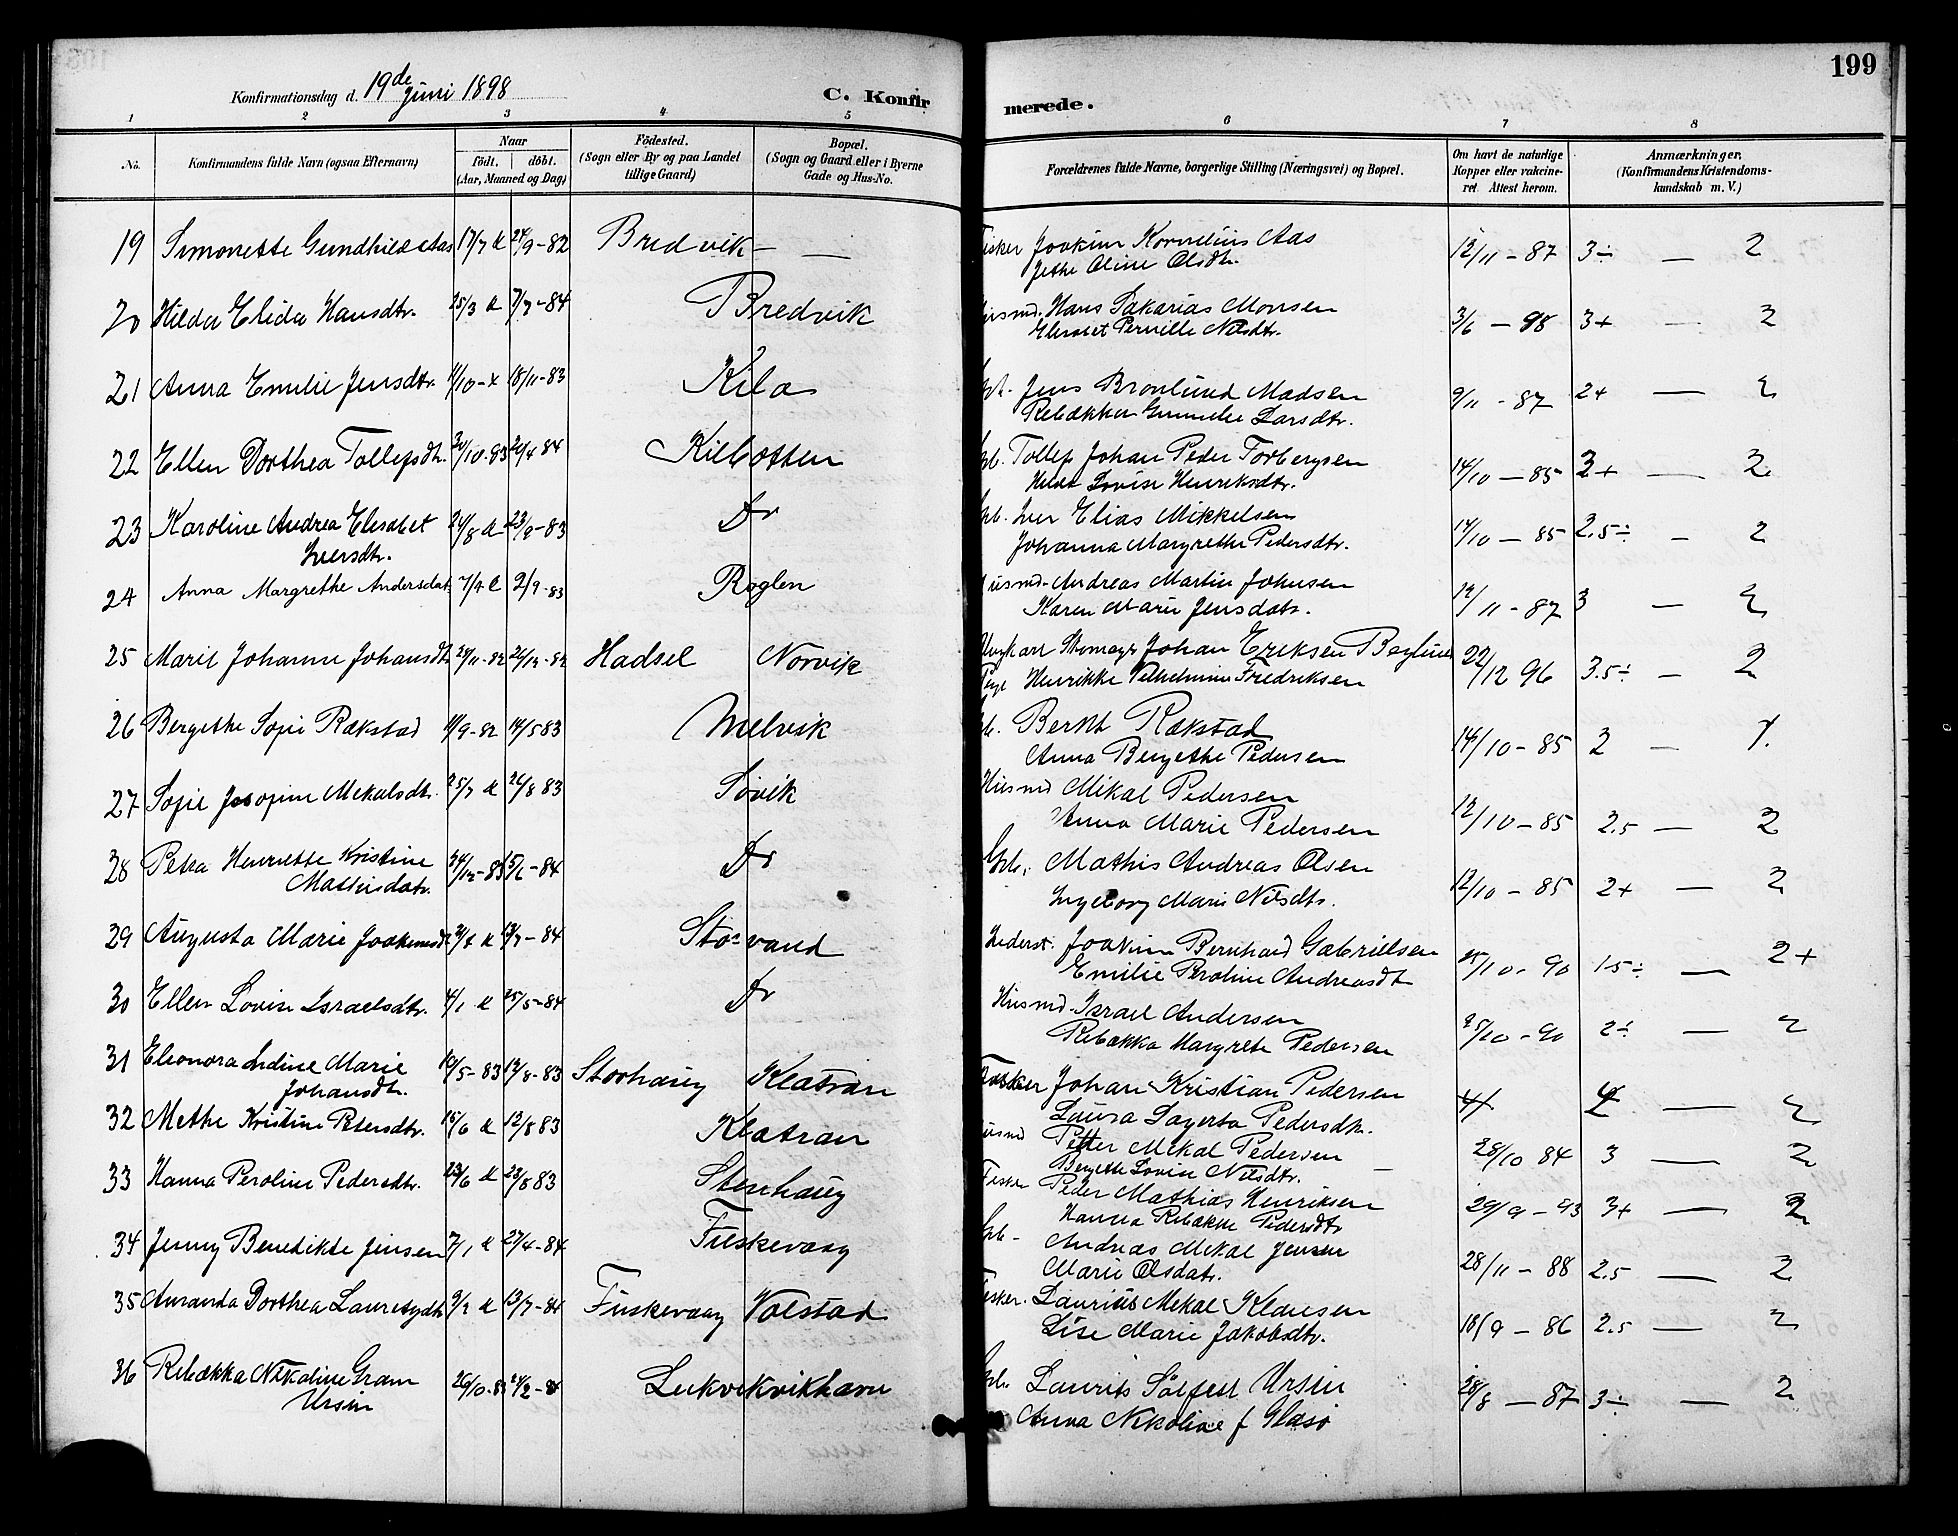 199
Konfirmationsdag d. 19de Juni 1898
C. Konfirmerede.
1 2 3 4 5 6 7 8
No.
Konfirmandens fulde Navn (ogsaa Efternavn)
Naar
født. døbt.
(Aar, Maaned og Dag)
Fødested.
(Sogn eller By og paa Landet
tillige Gaard)
Bopæl.
(Sogn og Gaard eller i Byerne
Gade og Hus-No.
Forældrenes fulde Navne, borgerlige Stilling (Næringsvei) og Bopæl.
Om havt de naturlige
Kopper eller vakcine-
ret. Attest herom.
Anmærkninger.
(Konfirmandens Kristendoms-
kundskab m. V.)
19 Simonette Gundhild Aas 17/7 24/9-82 Bredvik — Fisker Joakim Kornelius Aas 12/11-87 3÷ — 2
Jethe Oline Olsdtr.
20 Hilda Elida Hansdtr. 25/3 7/7-84 Bredvik Husmd. Hans Sakarias Monsen 3/6-98 3+ — 2
Elisabet Pernille Nilsdtr.
21 Anna Emilie Jensdtr. 18/11-83 Kila Gbr. Jens Bronlund Madsen 9/11-87 2+ — 2
Rebækka Larsdtr.
22 Ellen Dorthea Tollefsdtr. Kilbotten Gb. Tollef Johan Peder Torbergsen 14/10-85 3+ — 2
Lovise Henriksdtr.
23 Karoline Andrea Elisabet 23/9-83 Do Gb. Iver Elias Mikkelsen 14/10-85 2.5÷ — 2
Iversdtr. Johanna Margrethe Pedersdtr.
24 Anna Margrethe Andersdat. 7/4 2/9-83 Røglen Husmd. Andreas Martin Johnsen 12/11-87 3 — 2
Karen Marie Jensdatr.
25 Marit Johanne Johansdtr. Hadsel Norvik Johan Eriksen 22/12 96 3.5÷ — 2
Henrikke Vilhelmine Fredriksen
26 Bergethe Sofie Rakstad 14/5 83 Melvik Gb. Bernt Rakstad 14/10-85 2 —
Anna Bergethe Pedersen
27 Sofie Josopine Mekalsdtr. 25/7 26/8 83 Søvik Husmd Mikal Pedersen 12/10-85 2.5 — 2
Anna Marie Pedersen
28 Petra Henriette Kristine Do Gb. Mathis Andreas Olsen 12/10-85 2+ — 2
Mathisdatr. Ingeborg Marie Nilsdtr.
29 Augusta Marie Joakimsdtr. 13/7-84 Storvand Inderst. Joakim Bernhard Gabrielsen 25/10-90 1.5÷ — 2+
Emilie Peroline Andreasdtr
30 Ellen Lovise Israelsdtr. 4/1 25/5-84 Do Husmd. Israel Andersen 25/10-90 2÷ — 2
Rebækka Margrete Pedersen
31 Eleonora Indine Marie 19/5-83 12/8-83 Storhaug Klatran Fisker Johan Kristian Pedersen 4 — 2
Johansdtr. Laura Pedersdtr.
32 Methe Kristine Petersdtr. 15/6 12/8 83 Klatran Husmd Petter Mekal Pedersen 28/10 84 3 — 2
Bergette Lovise Nilsdtr.
33 Hanna Peroline Pedersdtr. 23/6 Stenhaug Fisker Peder Mathias Henriksen 29/9-93 3+ — 2
Hanna Rebække Pedersdtr
34 Jenny Benedikte Jensen 7/1 27/4-84 Fuskevaag Gb. Andreas Mekal Jensen 28/11-88 2.5 — 2
Marie Olsdatr.
35 Amanda Dorthea 9/2 13/7-84 Fuskevaag Volstad Fisker. Laurits Mekal Klausen 18/9-86 2.5 — 2
Lise Marie Jakobsdtr.
36 Rebækka Nikoline Gram 26/10-83 24/2-84 Gb. Laurits Ursin 28/8-87 3÷ — 2
Ursin Anna Nikoline f Glasø